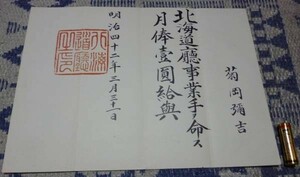 菊岡彌吉
北海道廳事業手ヲ命ス
月俸壹圓給與
明治四十二年三月三十一日
北海道廳之印